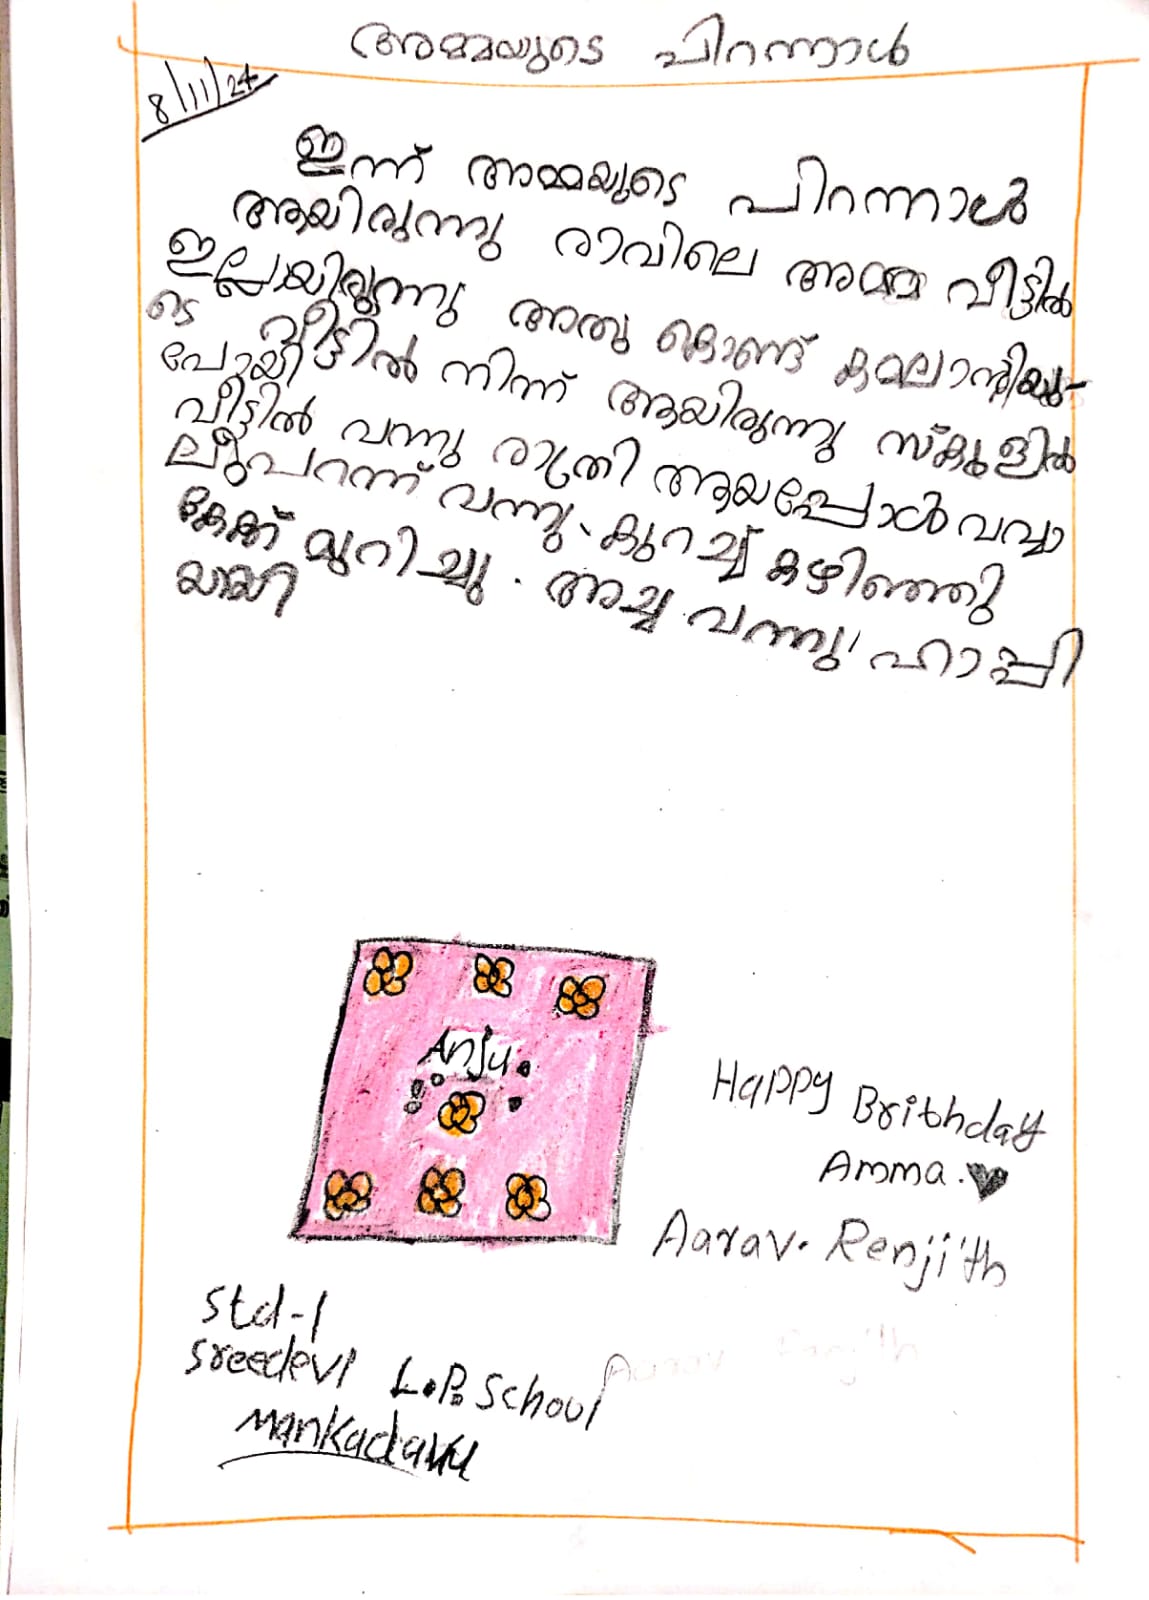 അമ്മയുടെ പിറന്നാൾ
8/11/24
ഇന്ന് അമ്മയുടെ പിറന്നാൾ
ആയിരുന്നു രാവിലെ അമ്മ വീട്ടിൽ
ഇല്ലേയിരുന്നു അതു കൊണ്ട് കമലാന്റിയു-
ടെ വീട്ടിൽ നിന്ന് ആയിരുന്നു സ്കൂളിൽ
പോയി
വീട്ടിൽ വന്നു രാത്രി ആയപ്പോൾ വവ്വാ
ലുപറന്ന് വന്നു. കുറച്ച് കഴിഞ്ഞു
കേക്ക് മുറിച്ചു. അച്ച വന്നു ഹാപ്പി
യായി
Anju
Happy Brithday
Amma.
Aarav. Renjith
Std-1
Sreedevi L.P. School
Aarav Renjith
Mankadavu